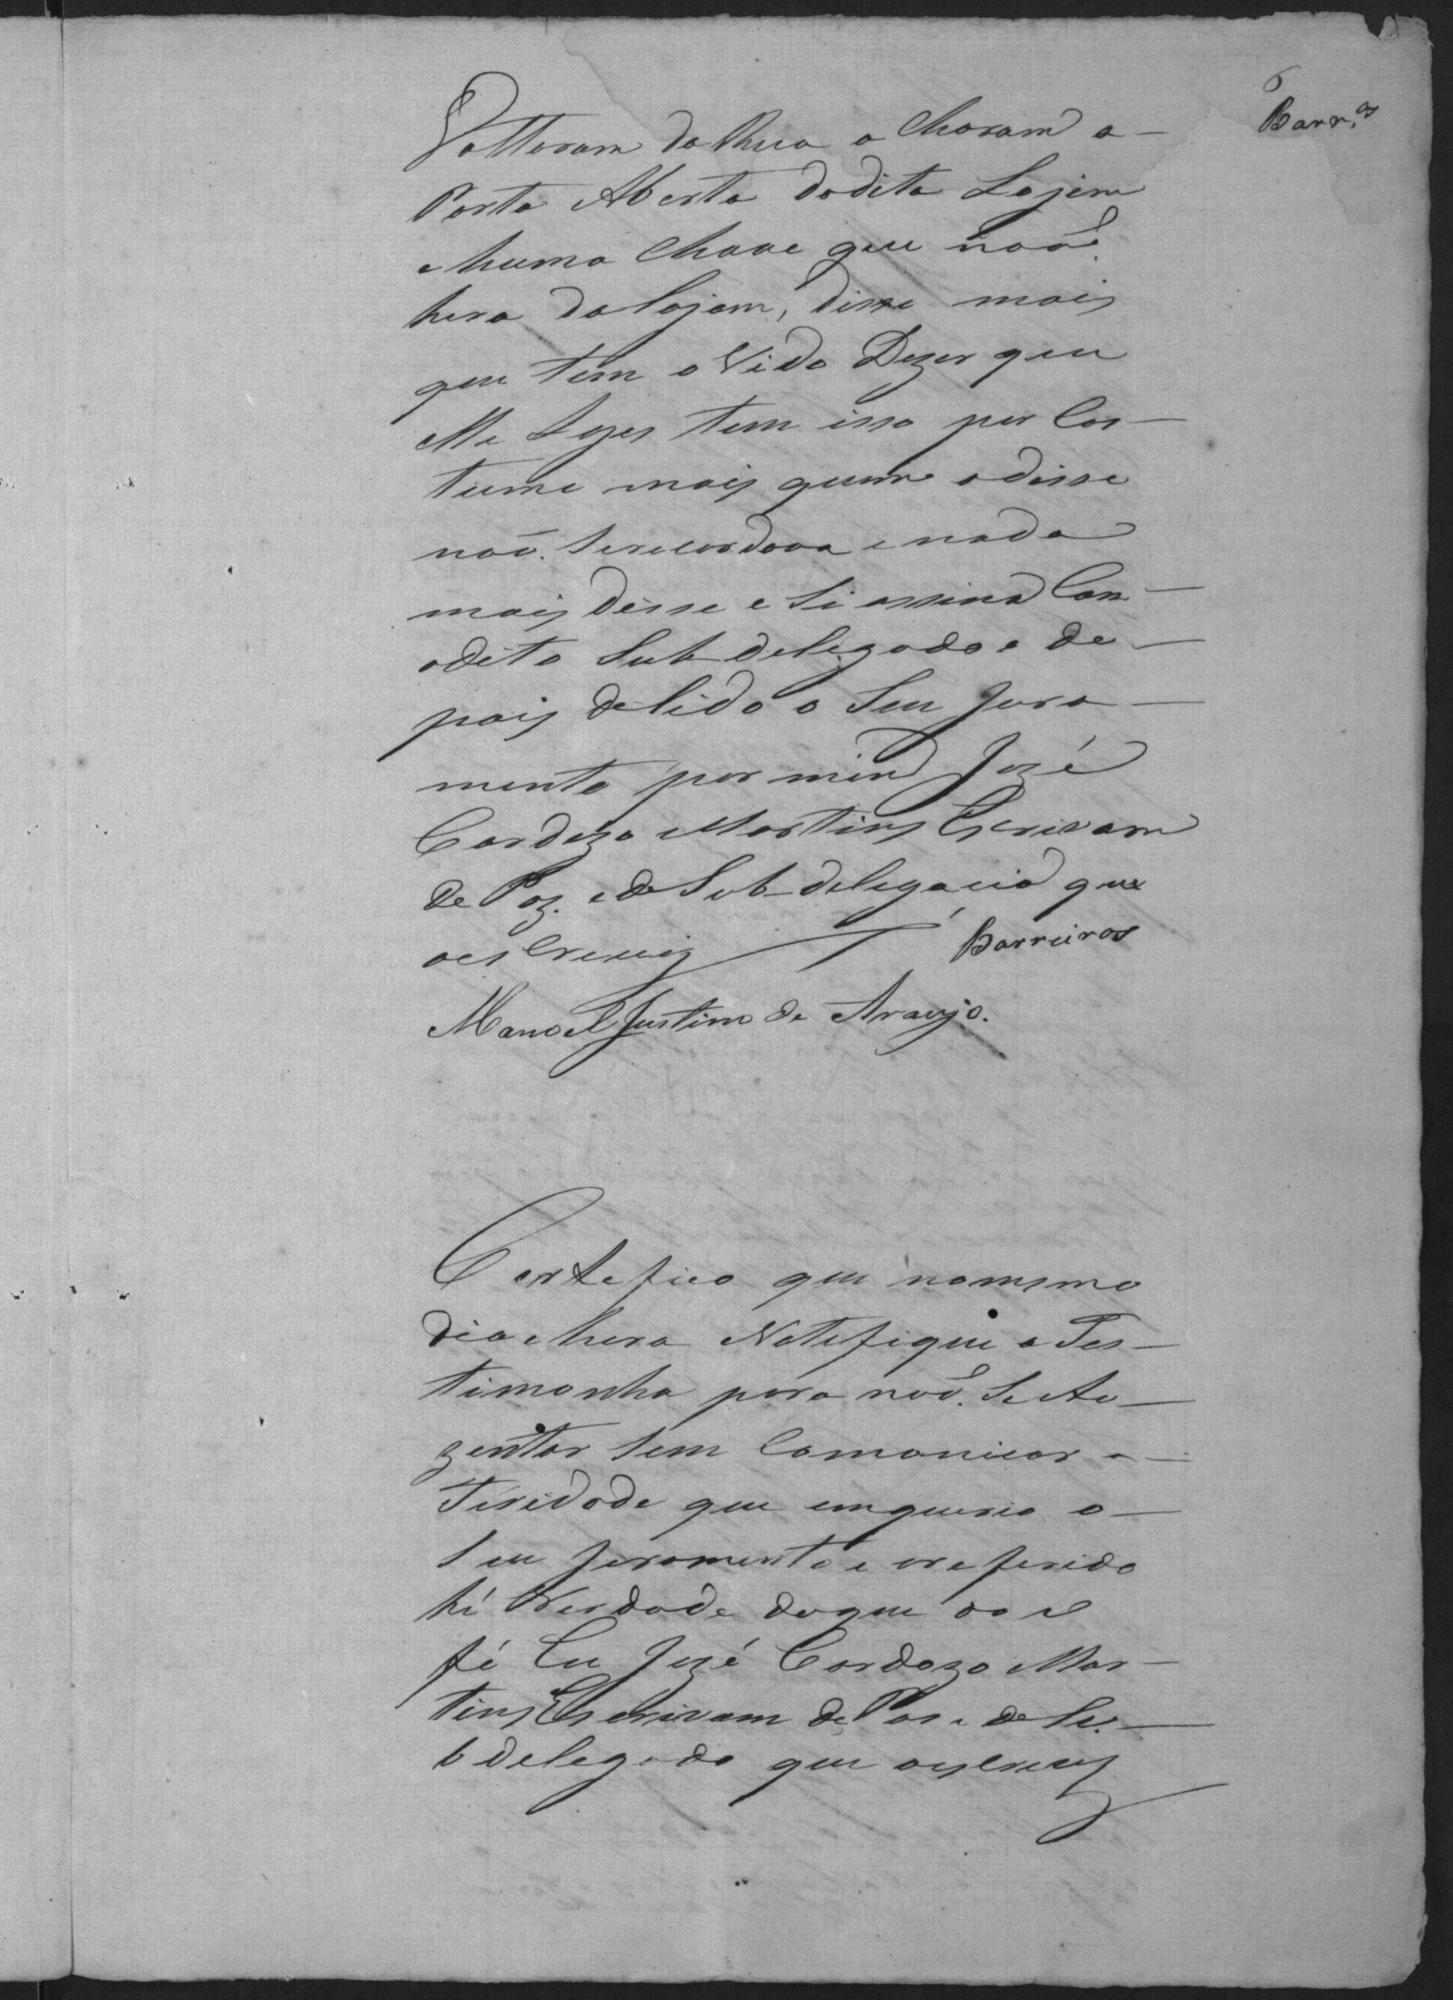 6
Barr.os
Voltaram da Rua a charam a
Porta Aberta dadita Lojem
e huma Chave que naõ
hera da lojam, disse mais
que tem o Vido Dezer que
tem isso por Cos-
tume mais quem odisse
naõ. Serecordava e nada
mais disse e Si assina Com
odito Sub delegado e de-
pois de lido o Seu Jura-
mento por mim José
Cardozo Martins Escrivam
de Paz. e de Sub delegacia que
oescreviy Barreiros
Manoel Justino de Araujo.
Certefico que nomesmo
dia e hera Notefiquei a Tes-
timonha para naõ. Se Au-
zentar Sem Comonicar a
Toridade que emqueria o
Seu Juramento e oreferido
hé Verdade doque do u
fé Eu José Cardozo Mar-
tins Escrivam de Pas e de Su-
b delegado que oescreviy